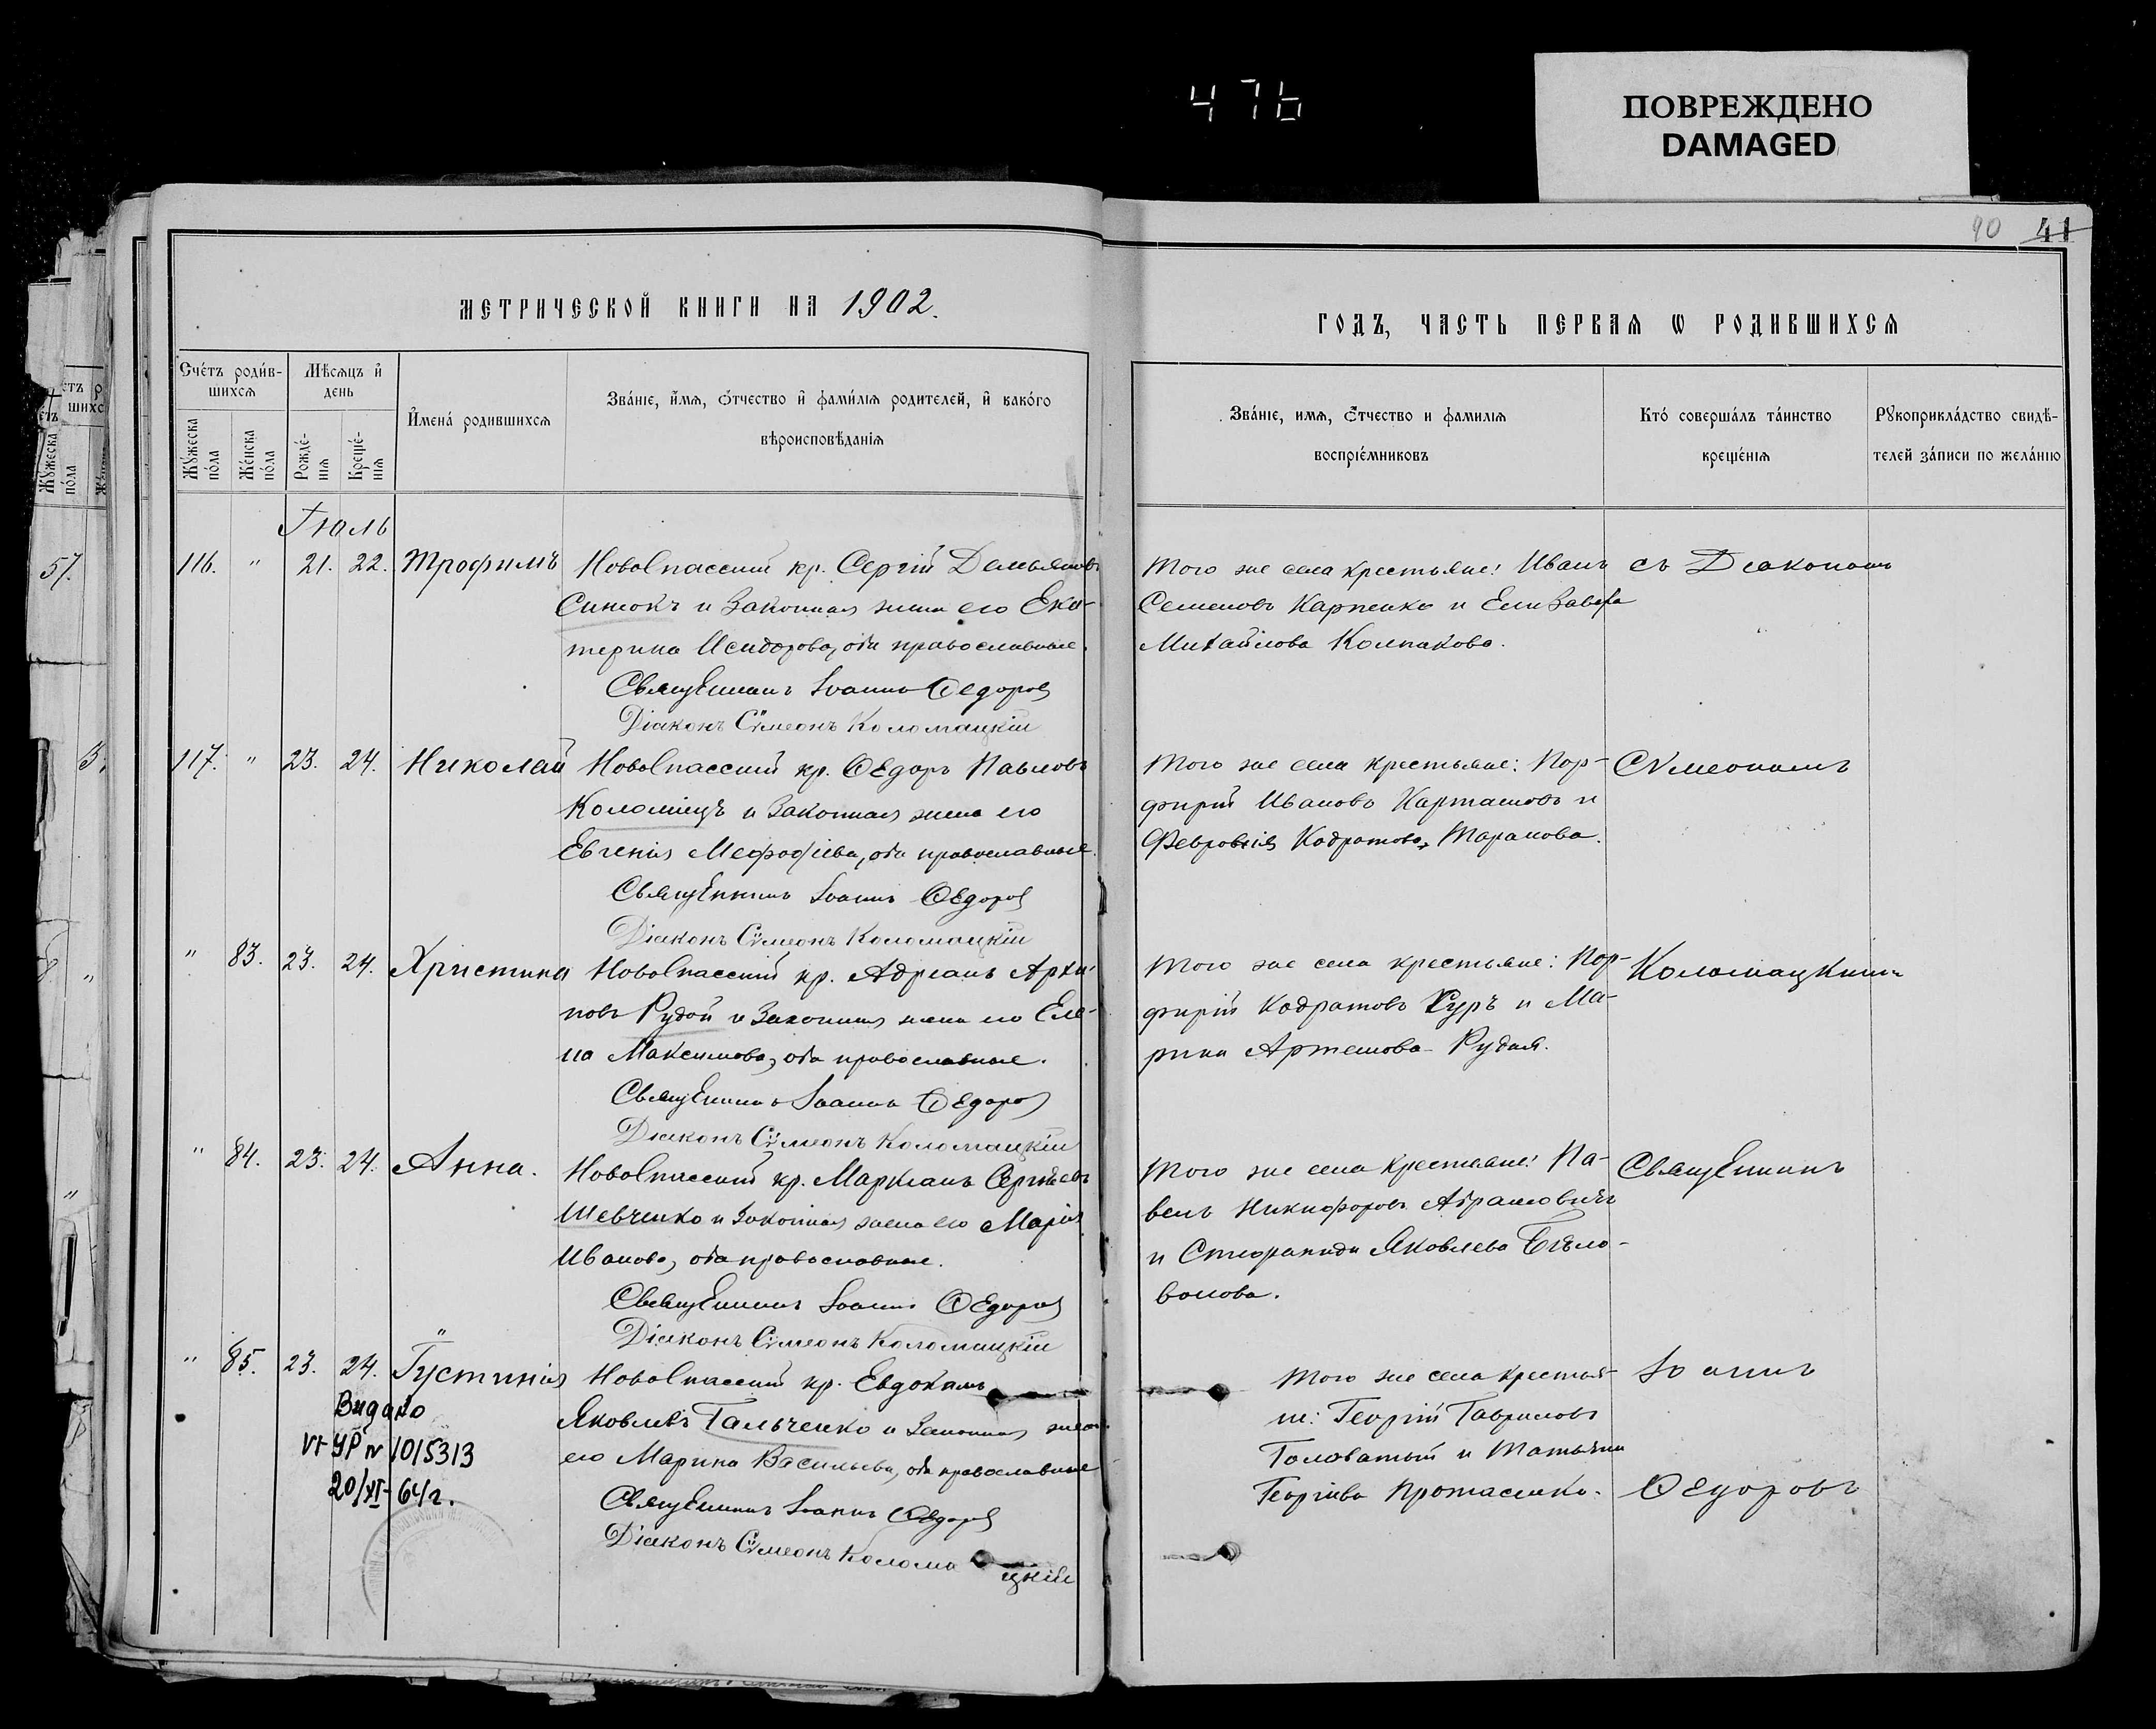 476
ПОВРЕЖДЕНО
DAMAGED
40 41
МЕТРИЧЕСКОЙ КНИГИ НА 1902.
ГОДЪ, ЧАСТЬ ПЕРВАЯ Ѡ РОДИВШИХСЯ
Счетъ родив-
шихся
Мѣсяцъ и
день
Мужеска
пола
Женска
пола
Рожде-
нія
Креще-
нія
Имена родившихся
Званіе, имя, отчество и фамилія родителей, и какого
вѣроисповѣданія
Званіе, имя, отчество и фамилія
воспріемниковъ
Кто совершалъ таинство
крещенія
Рукоприкладство свидѣ-
телей записи по желанію
Іюль
116. " 21. 22. Трофимъ
НовоСпасский кр. Сергій Демьяновъ
Синюкъ и законная жена его Ека-
терина Исидорова, оба православные.
Священникъ Іоаннъ Ѳедоровъ
Діаконъ Сѵмеонъ Коломацкій
Того же села крестьяне: Иванъ
Семеновъ Карпенко и Елизавета
Михайлова Колпакова.
съ Діакономъ
117. " 23. 24. Николай
НовоСпасский кр. Ѳедоръ Павловъ
Коломіецъ и законная жена его
Евгенія Меѳодіева, оба православные.
Священникъ Іоаннъ Ѳедоровъ
Діаконъ Сѵмеонъ Коломацкій
Того же села крестьяне: Пор-
фирій Ивановъ Карташовъ и
Февронія Кодратова Таранова.
Сѵмеономъ
" 83. 23. 24. Христина
НовоСпасский кр. Адріанъ Архи-
повъ Рудой и законная жена его Еле-
на Максимова, оба православные.
Священникъ Іоаннъ Ѳедоровъ
Діаконъ Сѵмеонъ Коломацкій
Того же села крестьяне: Пор-
фирій Кодратовъ Гуръ и Ма-
рина Артемова Рудая.
Коломацкимъ
" 84. 23. 24. Анна.
НовоСпасский кр. Маркіанъ Сергѣевъ
Шевченко и законная жена его Марія
Иванова, оба православные.
Священникъ Іоаннъ Ѳедоровъ
Діаконъ Сѵмеонъ Коломацкій
Того же села крестьяне: Па-
велъ Никифоровъ Абрамовичъ
и Стефанида Яковлева Бѣло-
конова.
Священникъ
" 85. 23. 24. Іустинія
НовоСпасский кр. Евдокимъ
Яковлевъ Гальченко и законная жена
его Марина Васильева, оба православные
Священникъ Іоаннъ Ѳедоровъ
Діаконъ Сѵмеонъ Коломацкій
Того же села крестья-
не: Георгій Гавриловъ
Головатый и Татьяна
Георгіева Протасенко.
Іоаннъ
Ѳедоровъ
Видано
УР № 1015313
20/XI-64г.